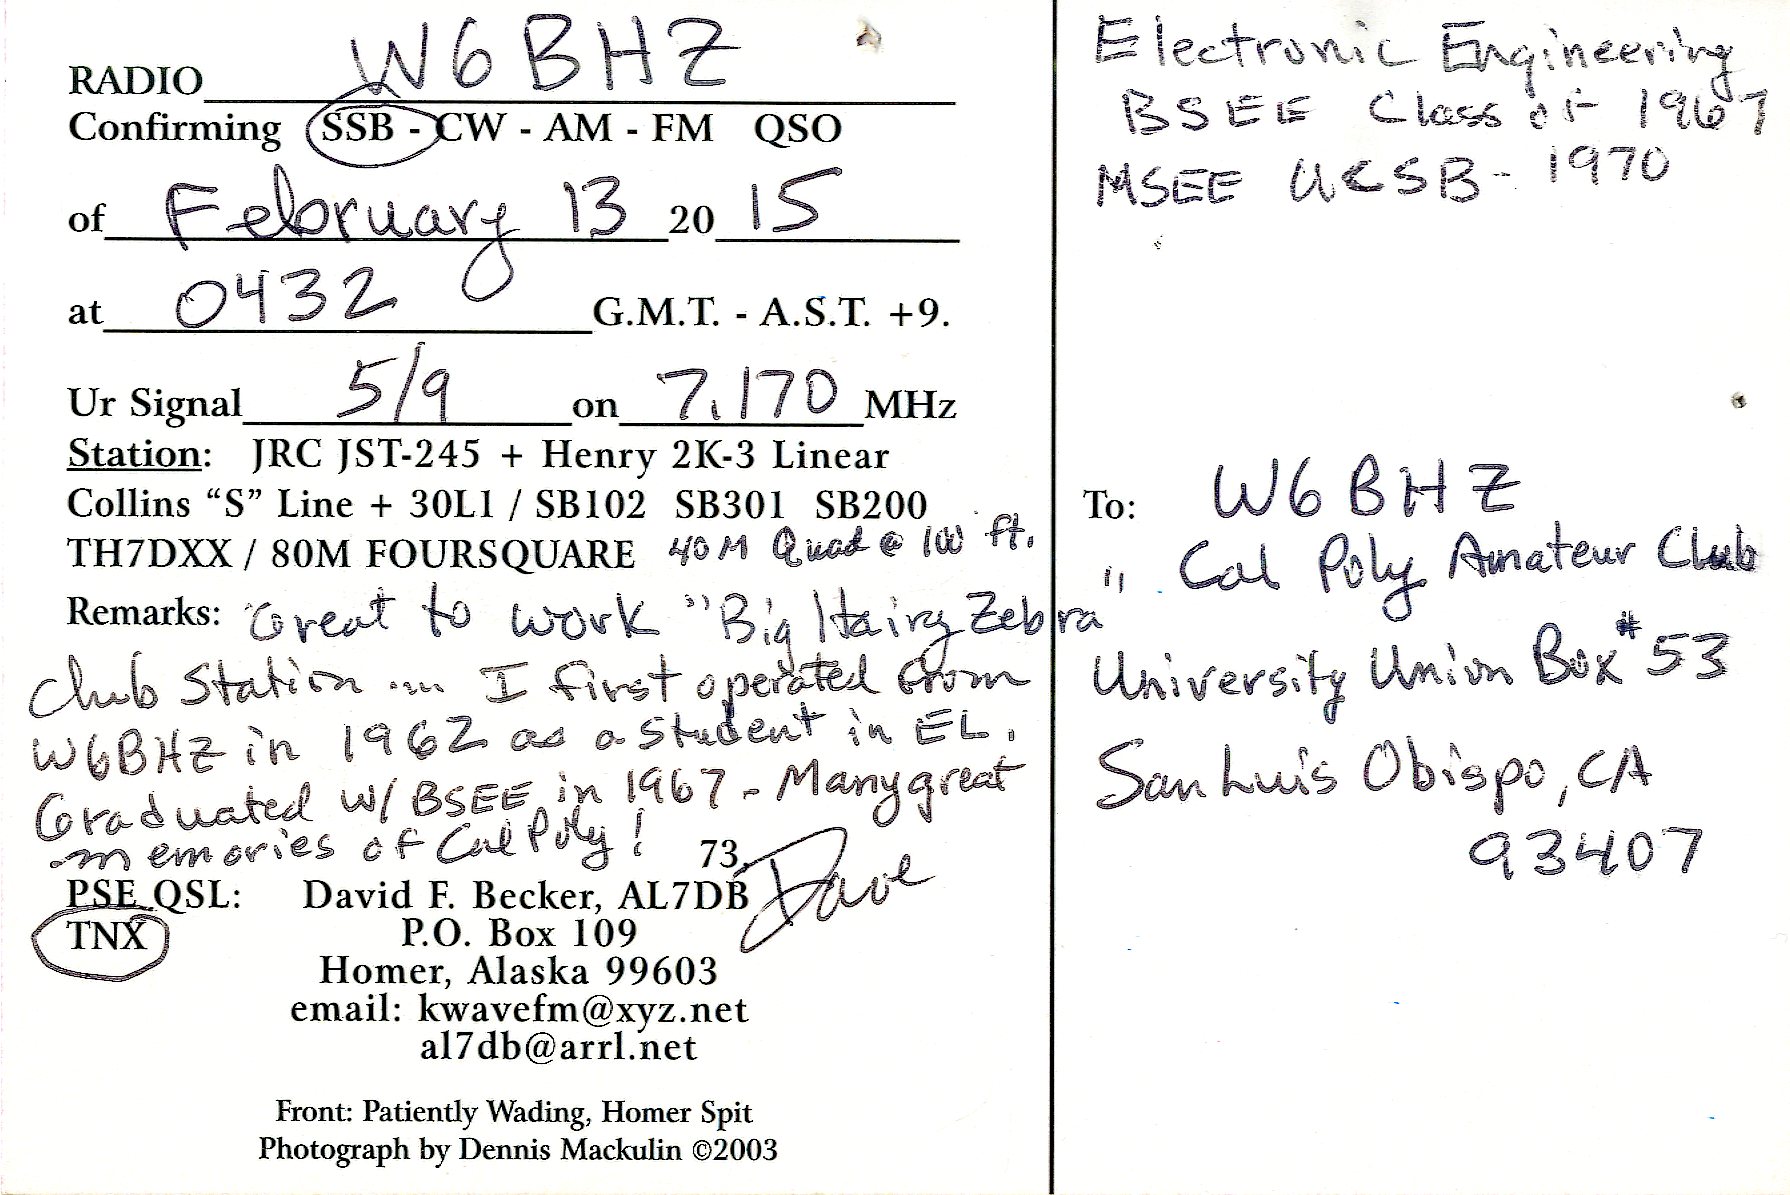 RADIO W6BHZ
Confirming SSB - CW - AM - FM QSO
of February 13 20 15
at 0432 G.M.T. - A.S.T. +9.
Ur Signal 5/9 on 7.170 MHz
Station: JRC JST-245 + Henry 2K-3 Linear
Collins “S” Line + 30L1 / SB102 SB301 SB200
TH7DXX / 80M FOURSQUARE 40M Quad @ 100 ft.
Remarks: Great to work "Big Hairy Zebra"
Club Station .... I first operated from
W6BHZ in 1962 as a student in EL.
Graduated w/ BSEE in 1967 - Many great
memories of Cal Poly! 73,
Dave
PSE QSL: David F. Becker, AL7DB
TNX P.O. Box 109
Homer, Alaska 99603
email: kwavefm@xyz.net
al7db@arrl.net
Front: Patiently Wading, Homer Spit
Photograph by Dennis Mackulin ©2003
Electronic Engineering
BSEE Class of 1967
MSEE UCSB - 1970
To: W6BHZ
Cal Poly Amateur Club
University Union Box #53
San Luis Obispo, CA
93407